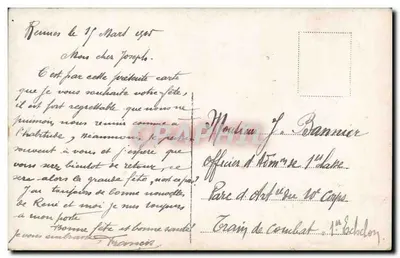 Rennes le 15 Mars 1915
Mon cher Joseph.
C'est par cette présente carte
que je vous souhaite votre fête,
il est fort regrettable que nous ne
puissions nous réunir comme à
l'habitude, néanmoins je pense
souvent à vous et j'espère que
vous serez bientôt de retour, ce
sera alors la grande fête, n'est ce pas ?
J'ai toujours de bonnes nouvelles
de René et moi je suis toujours
à mon poste
Bonne fête et bonne santé
Je vous embrasse
Francis
Monsieur J. Bannier
Officier d'Adm. de 1ère classe
Parc d'Art. du 10e Corps
Train de combat - 1er Echelon